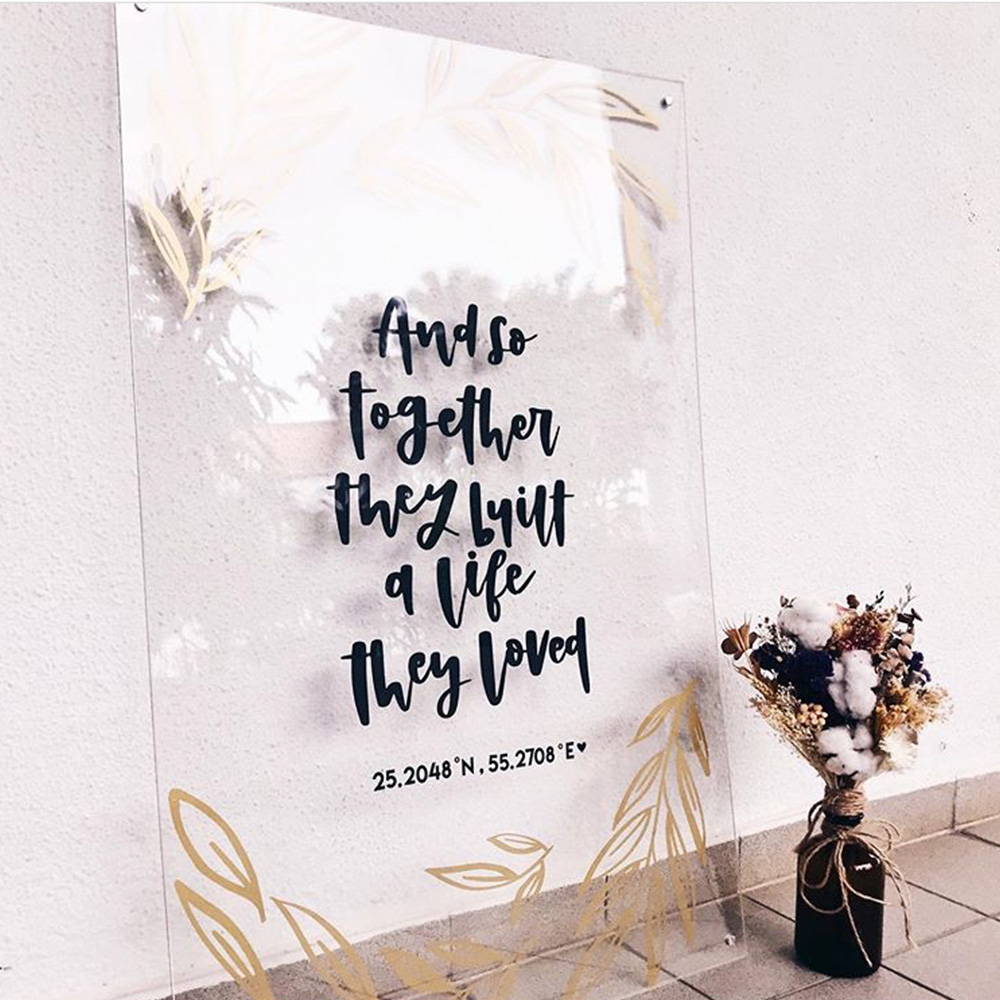 And so
together
they built
a life
they loved
25.2048°N, 55.2708°E♥